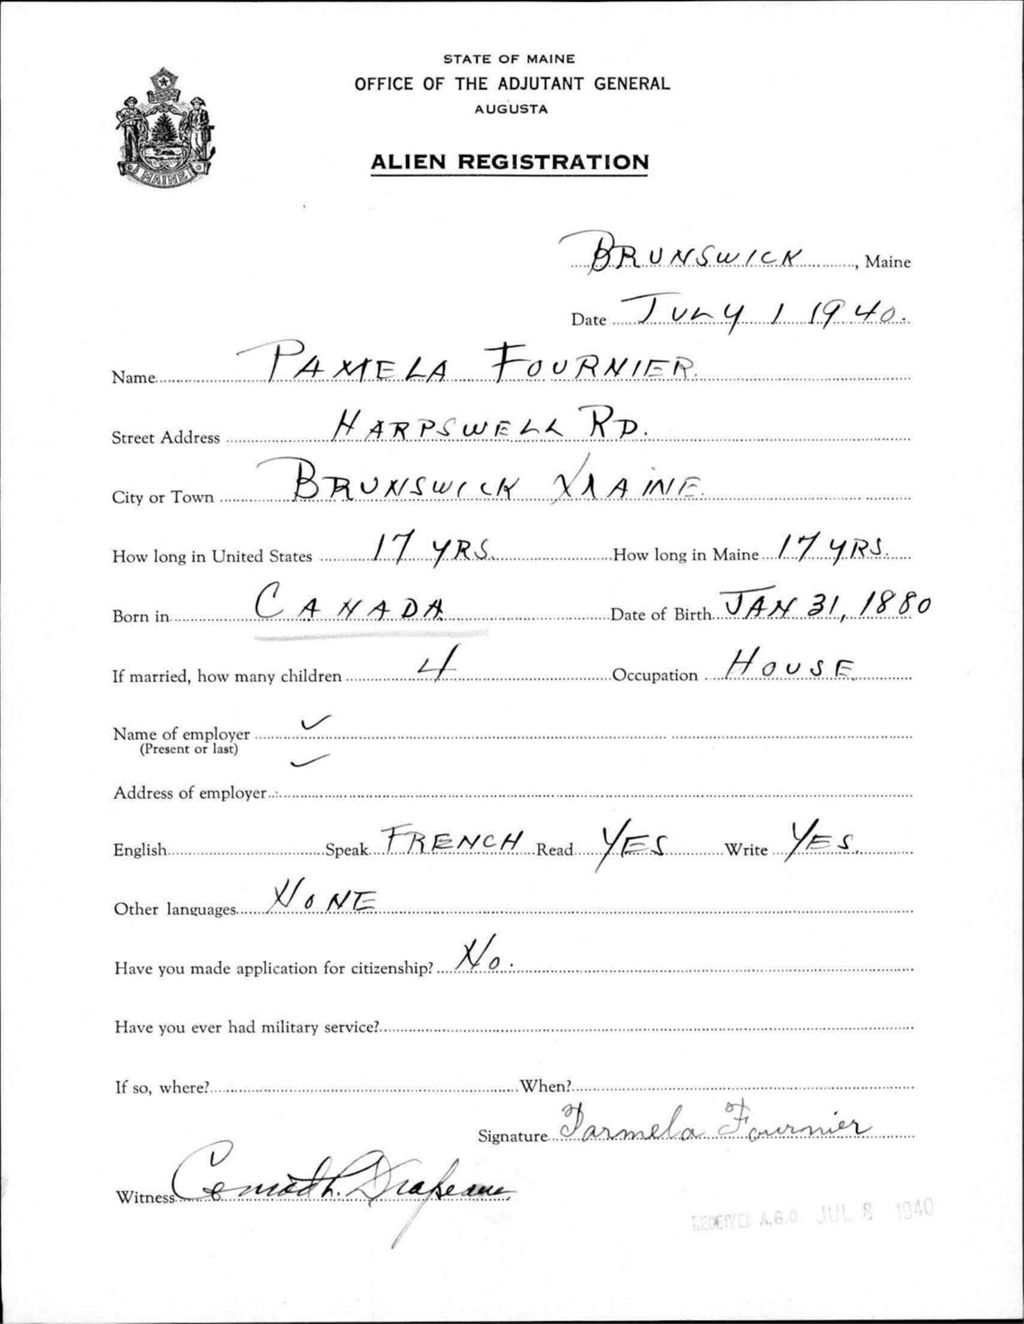 STATE OF MAINE
OFFICE OF THE ADJUTANT GENERAL
AUGUSTA
ALIEN REGISTRATION
MAINE
BRUNSWICK, Maine
Date JULY 1 1940.
Name PAMELA FOURNIER.
Street Address HARPSWELL RD.
City or Town BRUNSWICK MAINE.
How long in United States 17 YRS. How long in Maine 17 YRS.
Born in CANADA Date of Birth JAN 31, 1880
If married, how many children 4 Occupation HOUSE
Name of employer ✓
(Present or last)
Address of employer ✓
English Speak FRENCH Read YES Write YES.
Other languages NONE
Have you made application for citizenship? No.
Have you ever had military service?
If so, where? When?
Signature Parmela Fournier
Witness Drapeau
RECEIVED A.G.O. JUL 8 1940